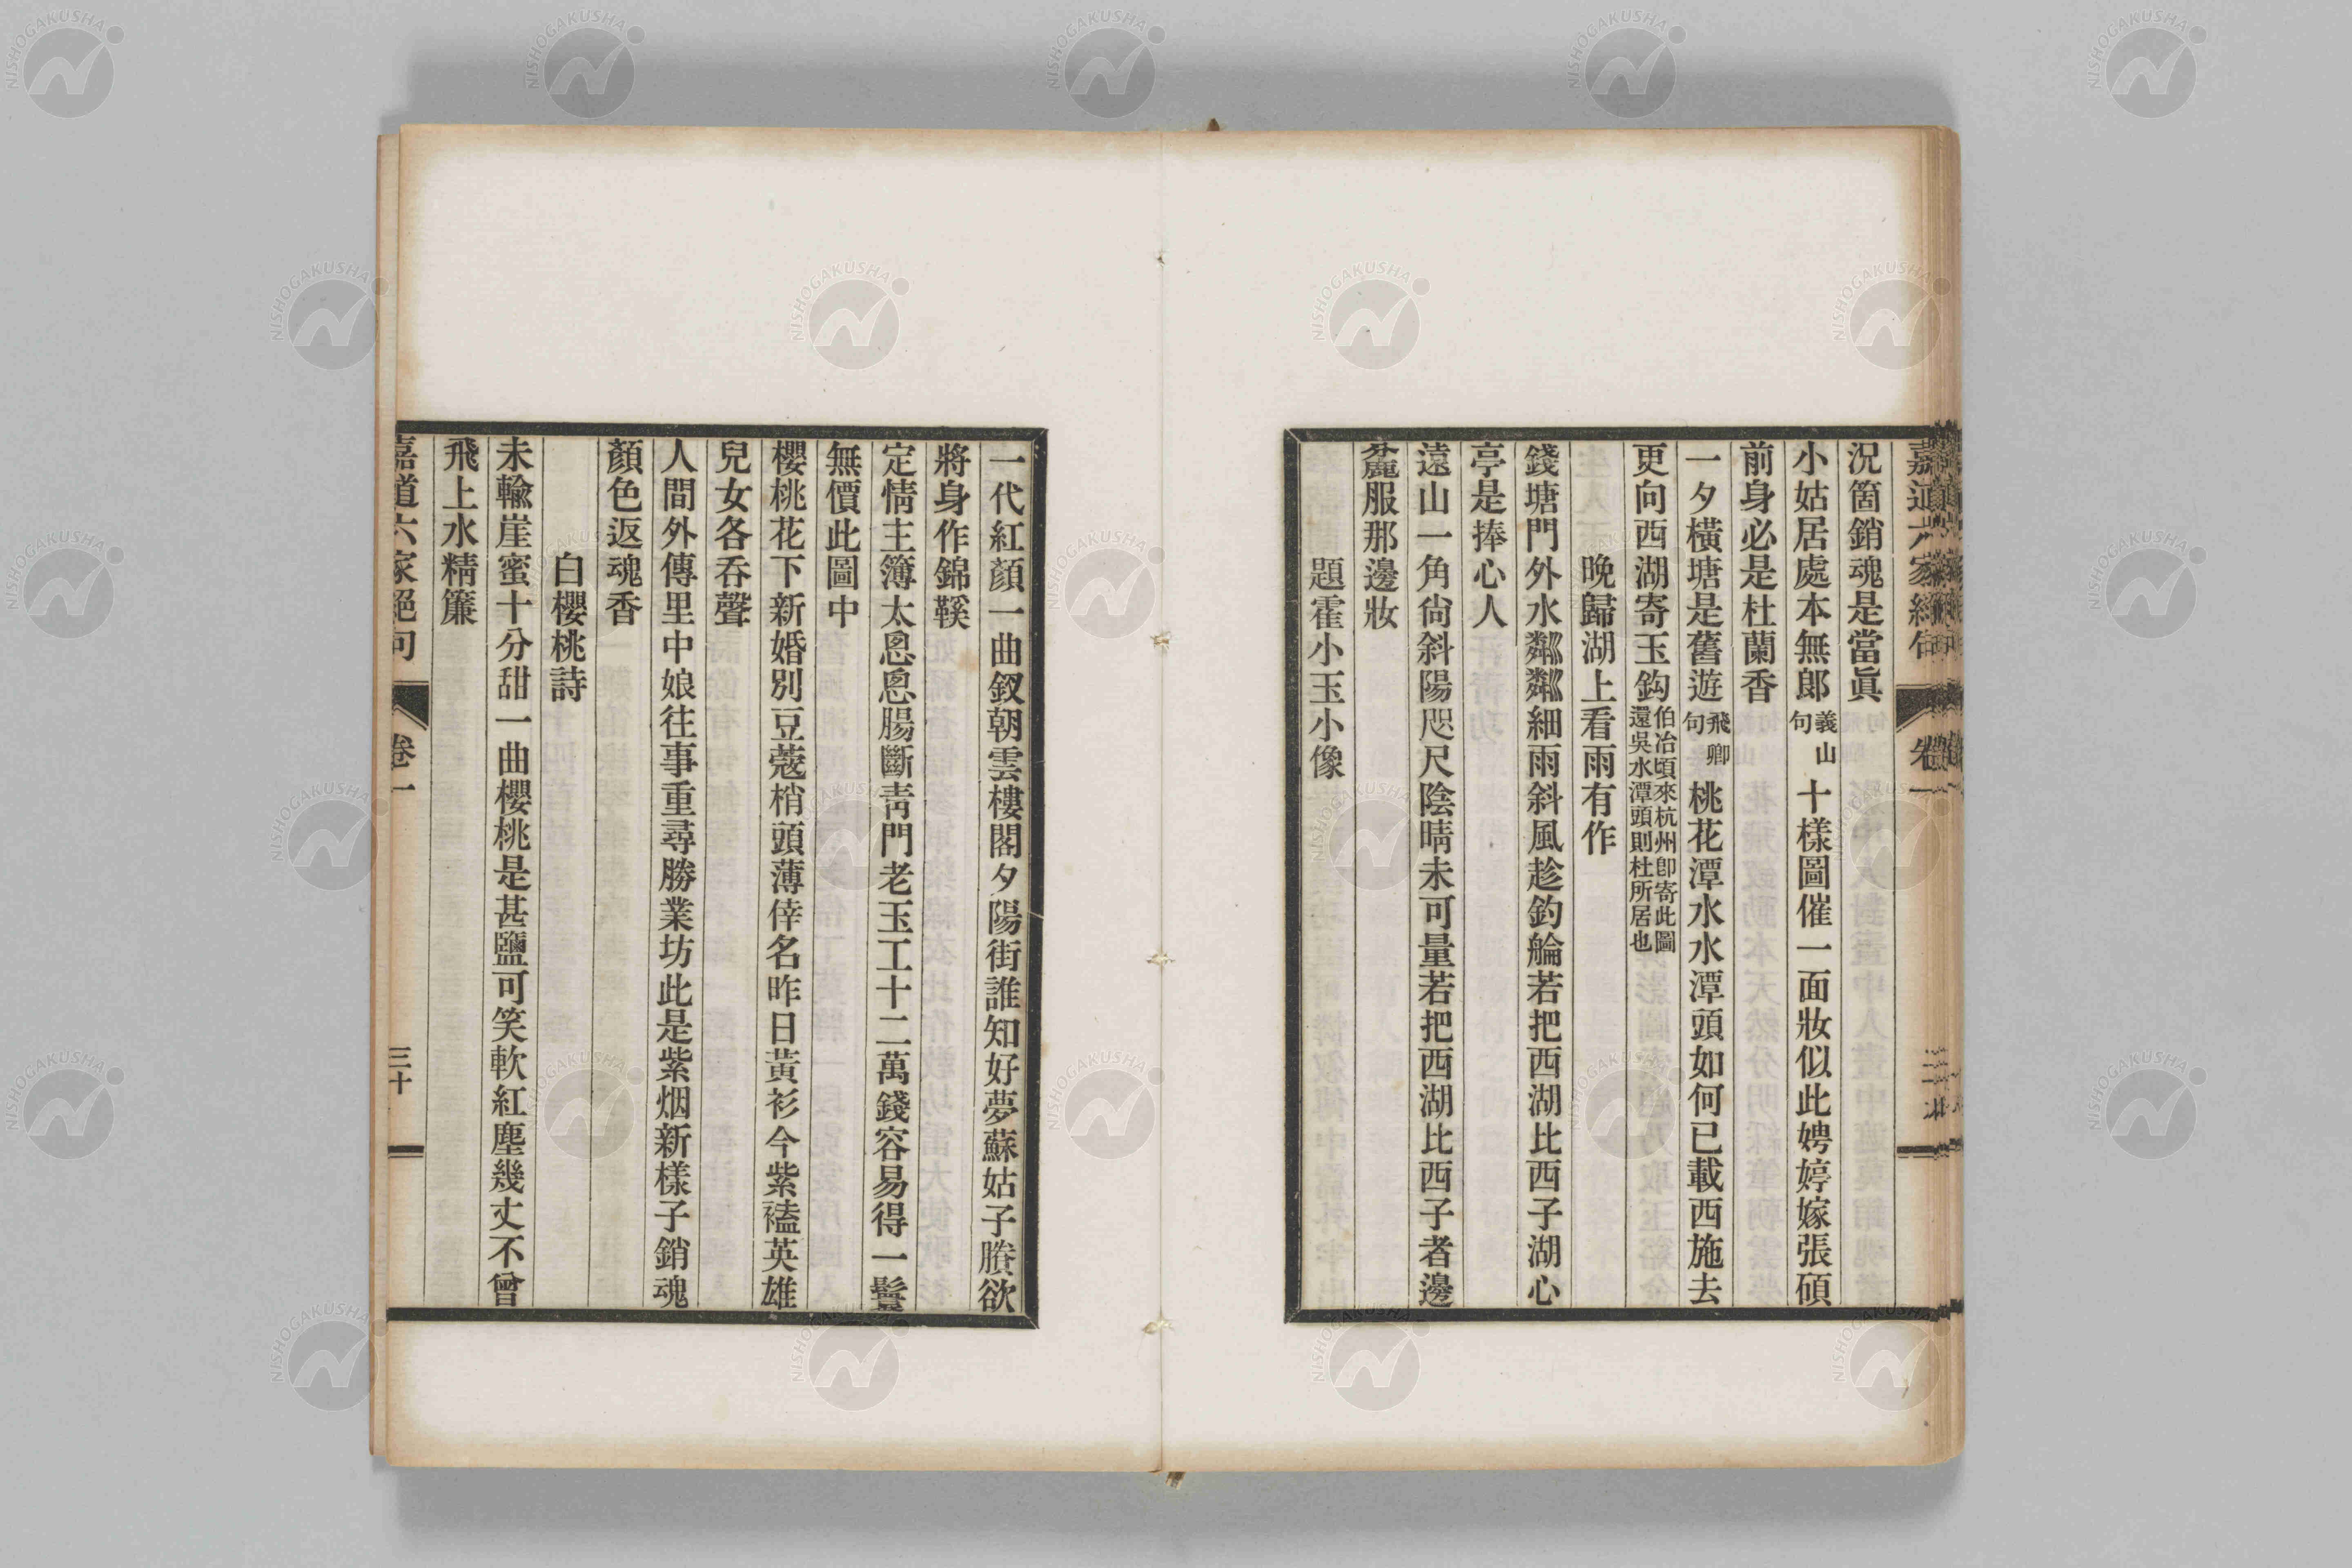 況箇銷魂是當眞
小姑居處本無郎義山句十樣圖催一面妝似此娉婷嫁張碩
前身必是杜蘭香
一夕橫塘是舊遊飛卿句桃花潭水水潭頭如何已載西施去
更向西湖寄玉鈎伯冶頃來杭州卽寄此圖還吳水潭頭則杜所居也
晚歸湖上看雨有作
錢塘門外水粼粼細雨斜風趁釣艙若把西湖比西子湖心
亭是捧心人
遠山一角尙斜陽咫尺陰晴未可量若把西湖比西子者邊
麄服那邊妝
題霍小玉小像
一代紅顏一曲釵朝雲樓閣夕陽街誰知好夢蘇姑子賸欲
將身作錦鞵
定情主簿太悤悤腸斷靑門老玉工十二萬錢容易得一鬟
無價此圖中
櫻桃花下新婚別豆蔻梢頭薄倖名昨日黃衫今紫𧝓英雄
兒女各呑聲
人間外傳里中娘往事重尋勝業坊此是紫烟新樣子銷魂
顏色返魂香
白櫻桃詩
未輸崖蜜十分甜一曲櫻桃是甚鹽可笑軟紅塵幾丈不曾
飛上水精簾
嘉道六家絕句
卷一
三十
NISHOGAKUSHA